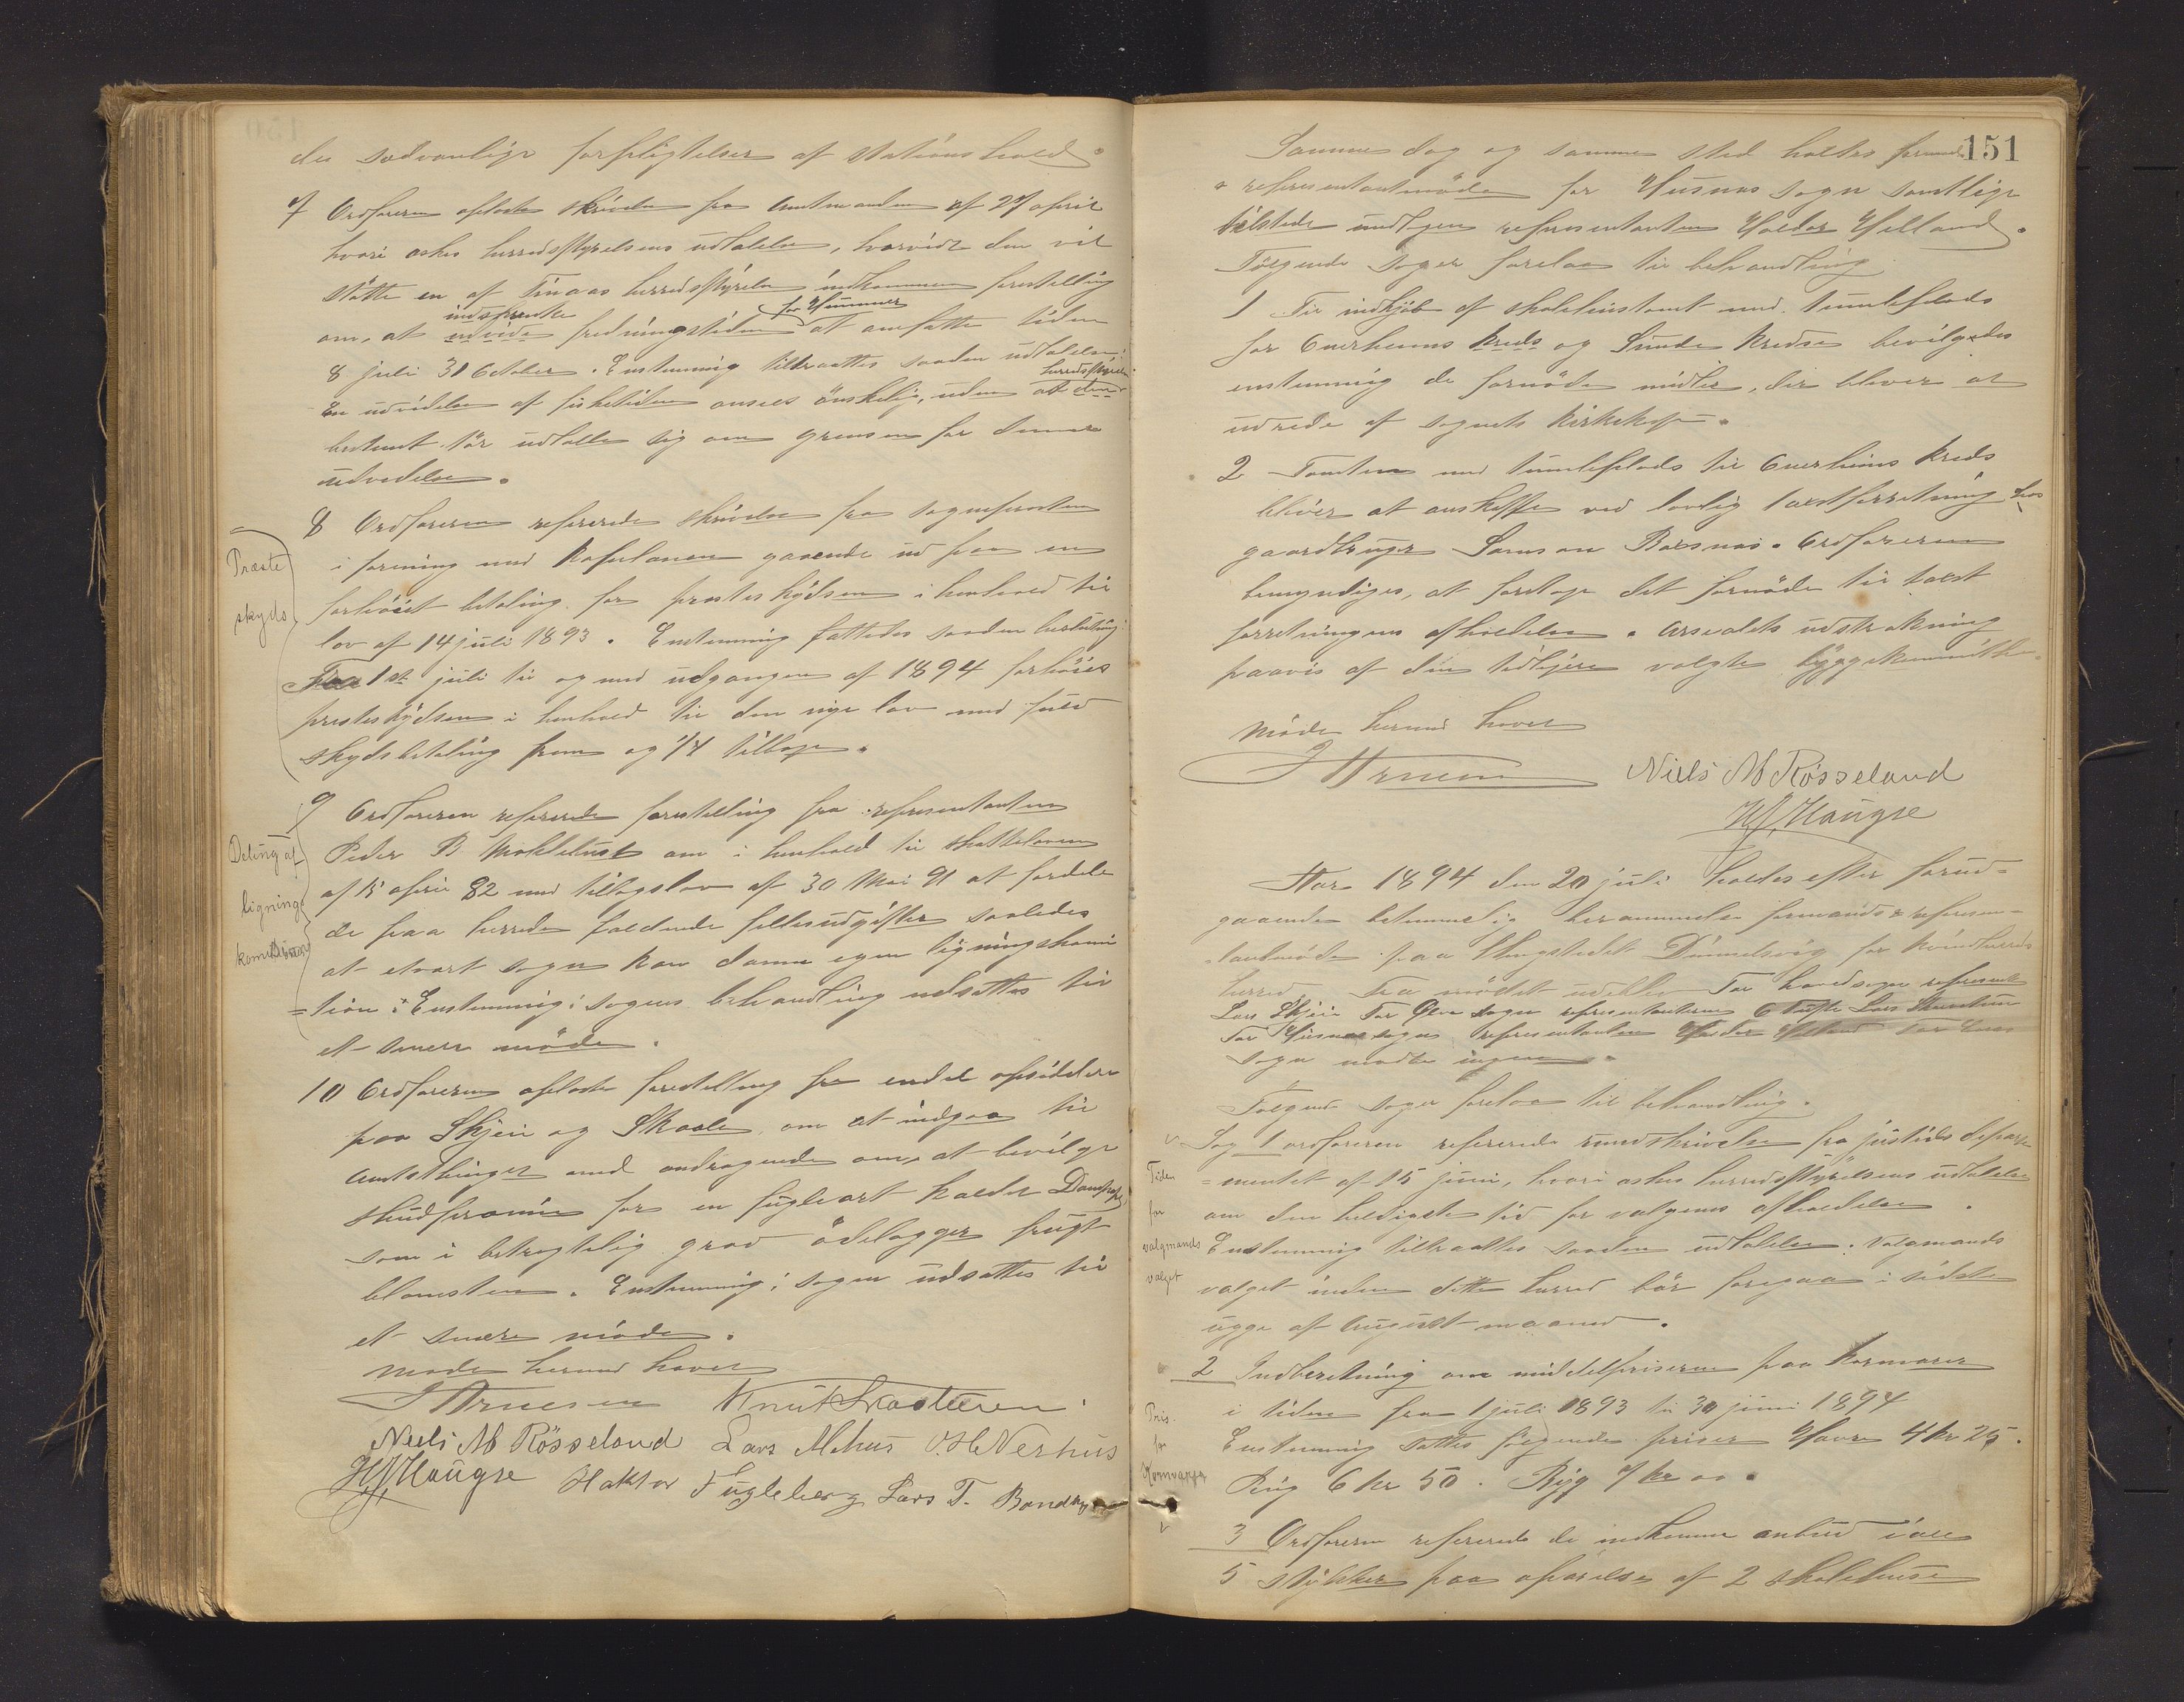 des sædvanlige forpligtelser af stationshold.
7 Ordføreren oplæste skrivelse fra Amtmanden af 27 april
hvori æskes herredsstyrelsens udtalelse, hvorvidt den vil
støtte en af Finaas herredsstyrelse indkommen forestilling
indskrænke for Hummer
om, at udvide fredningstiden at omfatte tiden
8 juli 31 October. Enstemmig tiltraadtes saadan udtalelse:
herredsstyrelsen
En udvidelse af fisketiden ansees ønskelig, uden at den
bestemt tør udtalle sig om grænsen for denne
udvidelse.
Præste
skyds
8 Ordføreren refererede skrivelse fra sognepresten
i forening med Kapelanen gaaende ud paa en
forhøiet betaling for presteskydsen i henhold til
lov af 14 juli 1893. Enstemmig fattedes saadan beslutning:
Fra 1st juli til og med udgangen af 1894 forhøies
presteskydsen i henhold til den nye lov med fuld
skydsbetaling frem og 1/4 tilbage.
Deling af
lignings
kommission
9 Ordføreren refererede forestilling fra representanten
Peder B Mehlthust om i henhold til skatteloven
af 15 april 82 med tillægslov af 30 Mai 91 at fordele
de paa herredet faldende fællesudgifter saaledes
at etvert sogn kan danne egen ligningskomi
=sion: Enstemmig: sagens behandling udsættes til
et senere møde.
10 Ordføreren oplæste forestilling fra endel opsiddere
paa Skjeie og Skaale, om at indgaa til
Amtsthinget med andragende om, at bevilge
skudpræmie for en fugleart kaldet Dompap
som i betragtelig grad ödelægger frugt
blomsten. Enstemmig: sagen udsættes til
et senere møde.
Møde hermed hævet
J Arnesen Knut Skaaluren
Niels M Røsseland Lars Mehus O. H Nerhus
H J Haugse Haktor Fugleberg Lars T. Bond
151
Samme dag og samme sted holdtes formand
& representantmøde for Husnæs sogn samtlige
tilstede undtagen representanten Haldor Helland.
Følgende sager forelaa til behandling
1 Til indkjøb af skolehustomt med tumleplads
for Enerhaugs kreds og Sunde kreds bevilgedes
enstemmig de fornødne midler, der bliver at
udrede af sognets Kirkekasse.
2 Tomten med tumleplads til Enerheims kreds
bliver at anskaffe ved lovlig taxtforretning hos
gaardbruger Samson Røssnæs. Ordføreren
bemyndiges, at foretage det fornødne til taxt
forretningens afholdelse. Arealets udstrækning
paavis af den tidligere valgte byggekommitte.
Møde hermed hævet
J Arnesen Niels M Røsseland
H J Haugse
Aar 1894 den 20 juli holdtes efter forud=
gaaende betimmelig berammelse formands & represen=
tantmøde paa thingstedet Dimmelsvig for Kvindherreds
herred. Fra mødet udebleve For hovedsogn represent
Lars Skjeie For Ølve sogn representanterne O Tufte Lars
For Husnæs sogn representanten Haldor Helland For Enæs
sogn mødte ingen.
Følgende sager forelaa til behandling.
Tiden
for
valgmands
valget
Sag 1 ordføreren refererede rundskrivelse fra justidsdeparte
=mentet af 15 juni, hvori æskes herredsstyrelsens udtalelse
om den heldigste tid for valgenes afholdelse.
Enstemmig tiltraadtes saadan udtalelse: Valgmands
valget inden dette herred bør foregaa i sidste
ugge af August maaned.
Pris
for
Kornvarer
2 Indberetning om middelpriserne paa Kornvarer
i tiden fra 1 juli 1893 til 30 juni 1894
Enstemmig sattes følgende priser Havre 4 kr 25.
Rug 6 kr 50. Byg 7 kr 00.
3 Ordføreren refererede de indkomne anbud i alt
5 stykker paa opførelse af 2 skolehuse